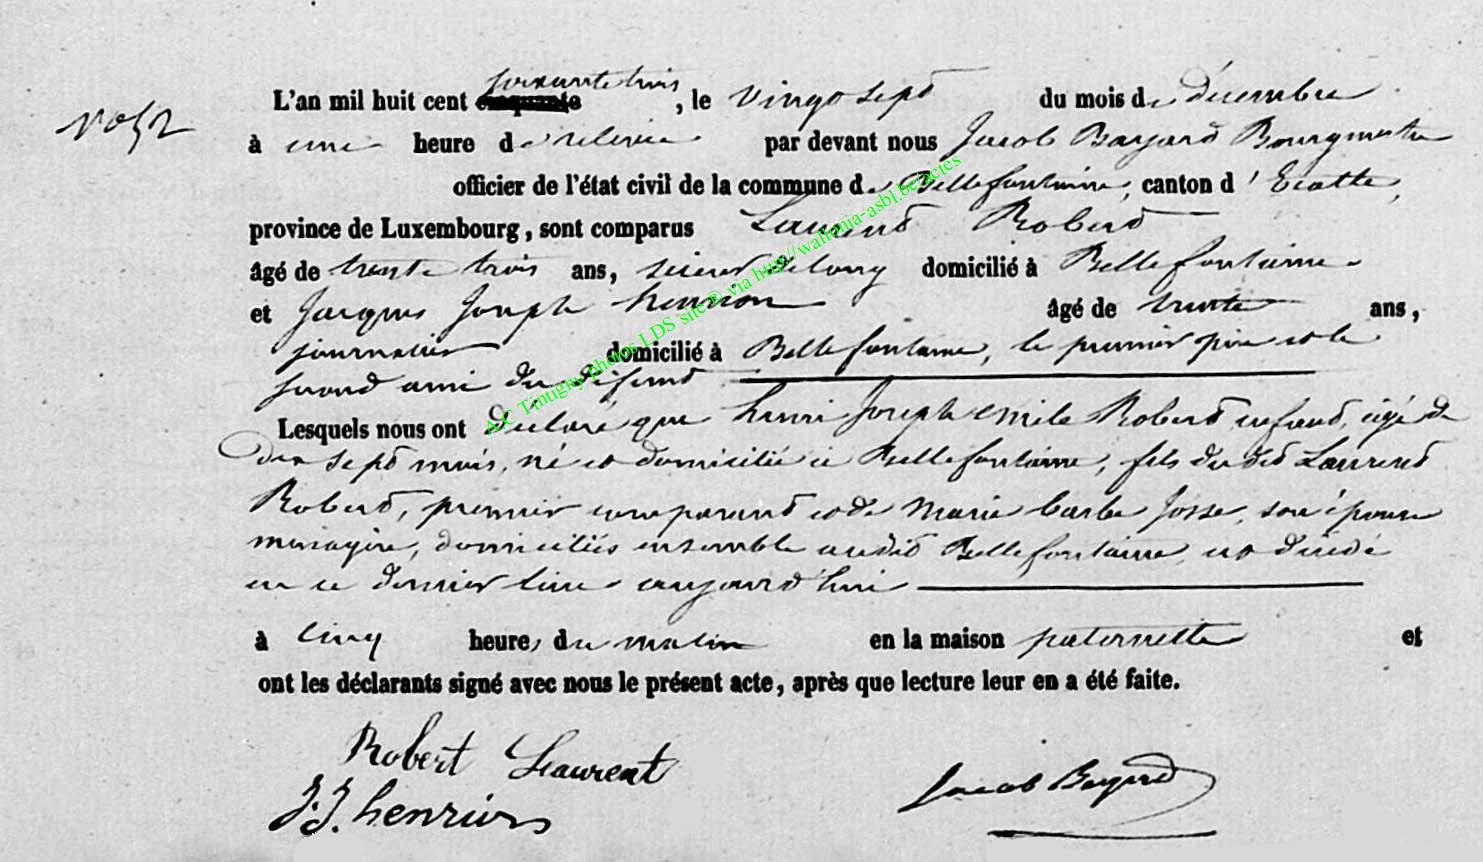 N° 52
L'an mil huit cent cinquante soixante trois, le vingt sept du mois de décembre
à une heure de relevée par devant nous Jacob Bayard Bourgmestre
officier de l'état civil de la commune de Bellefontaine, canton d'Etalle,
province de Luxembourg, sont comparus Laurent Robert
âgé de trente trois ans, scieur de long domicilié à Bellefontaine
et Jacques Joseph henrion âgé de trente ans,
journalier domicilié à Bellefontaine, le premier père et le
second ami du défunt
Lesquels nous ont déclaré que henri Joseph emile Robert enfant, âgé de
dix sept mois, né et domicilié à Bellefontaine, fils du dit Laurent
Robert, premier comparant et de Marie barbe Josse, son épouse
ménagère, domiciliés ensemble audit Bellefontaine, est décédé
en ce dernier lieu aujourd'hui
à cinq heures du matin en la maison paternelle et
ont les déclarants signé avec nous le présent acte, après que lecture leur en a été faite.
Robert Laurent
J.J. henrion
Jacob Bayard
A.C Tintigny photos LDS site© via http//wallonia-asbl.be/actes